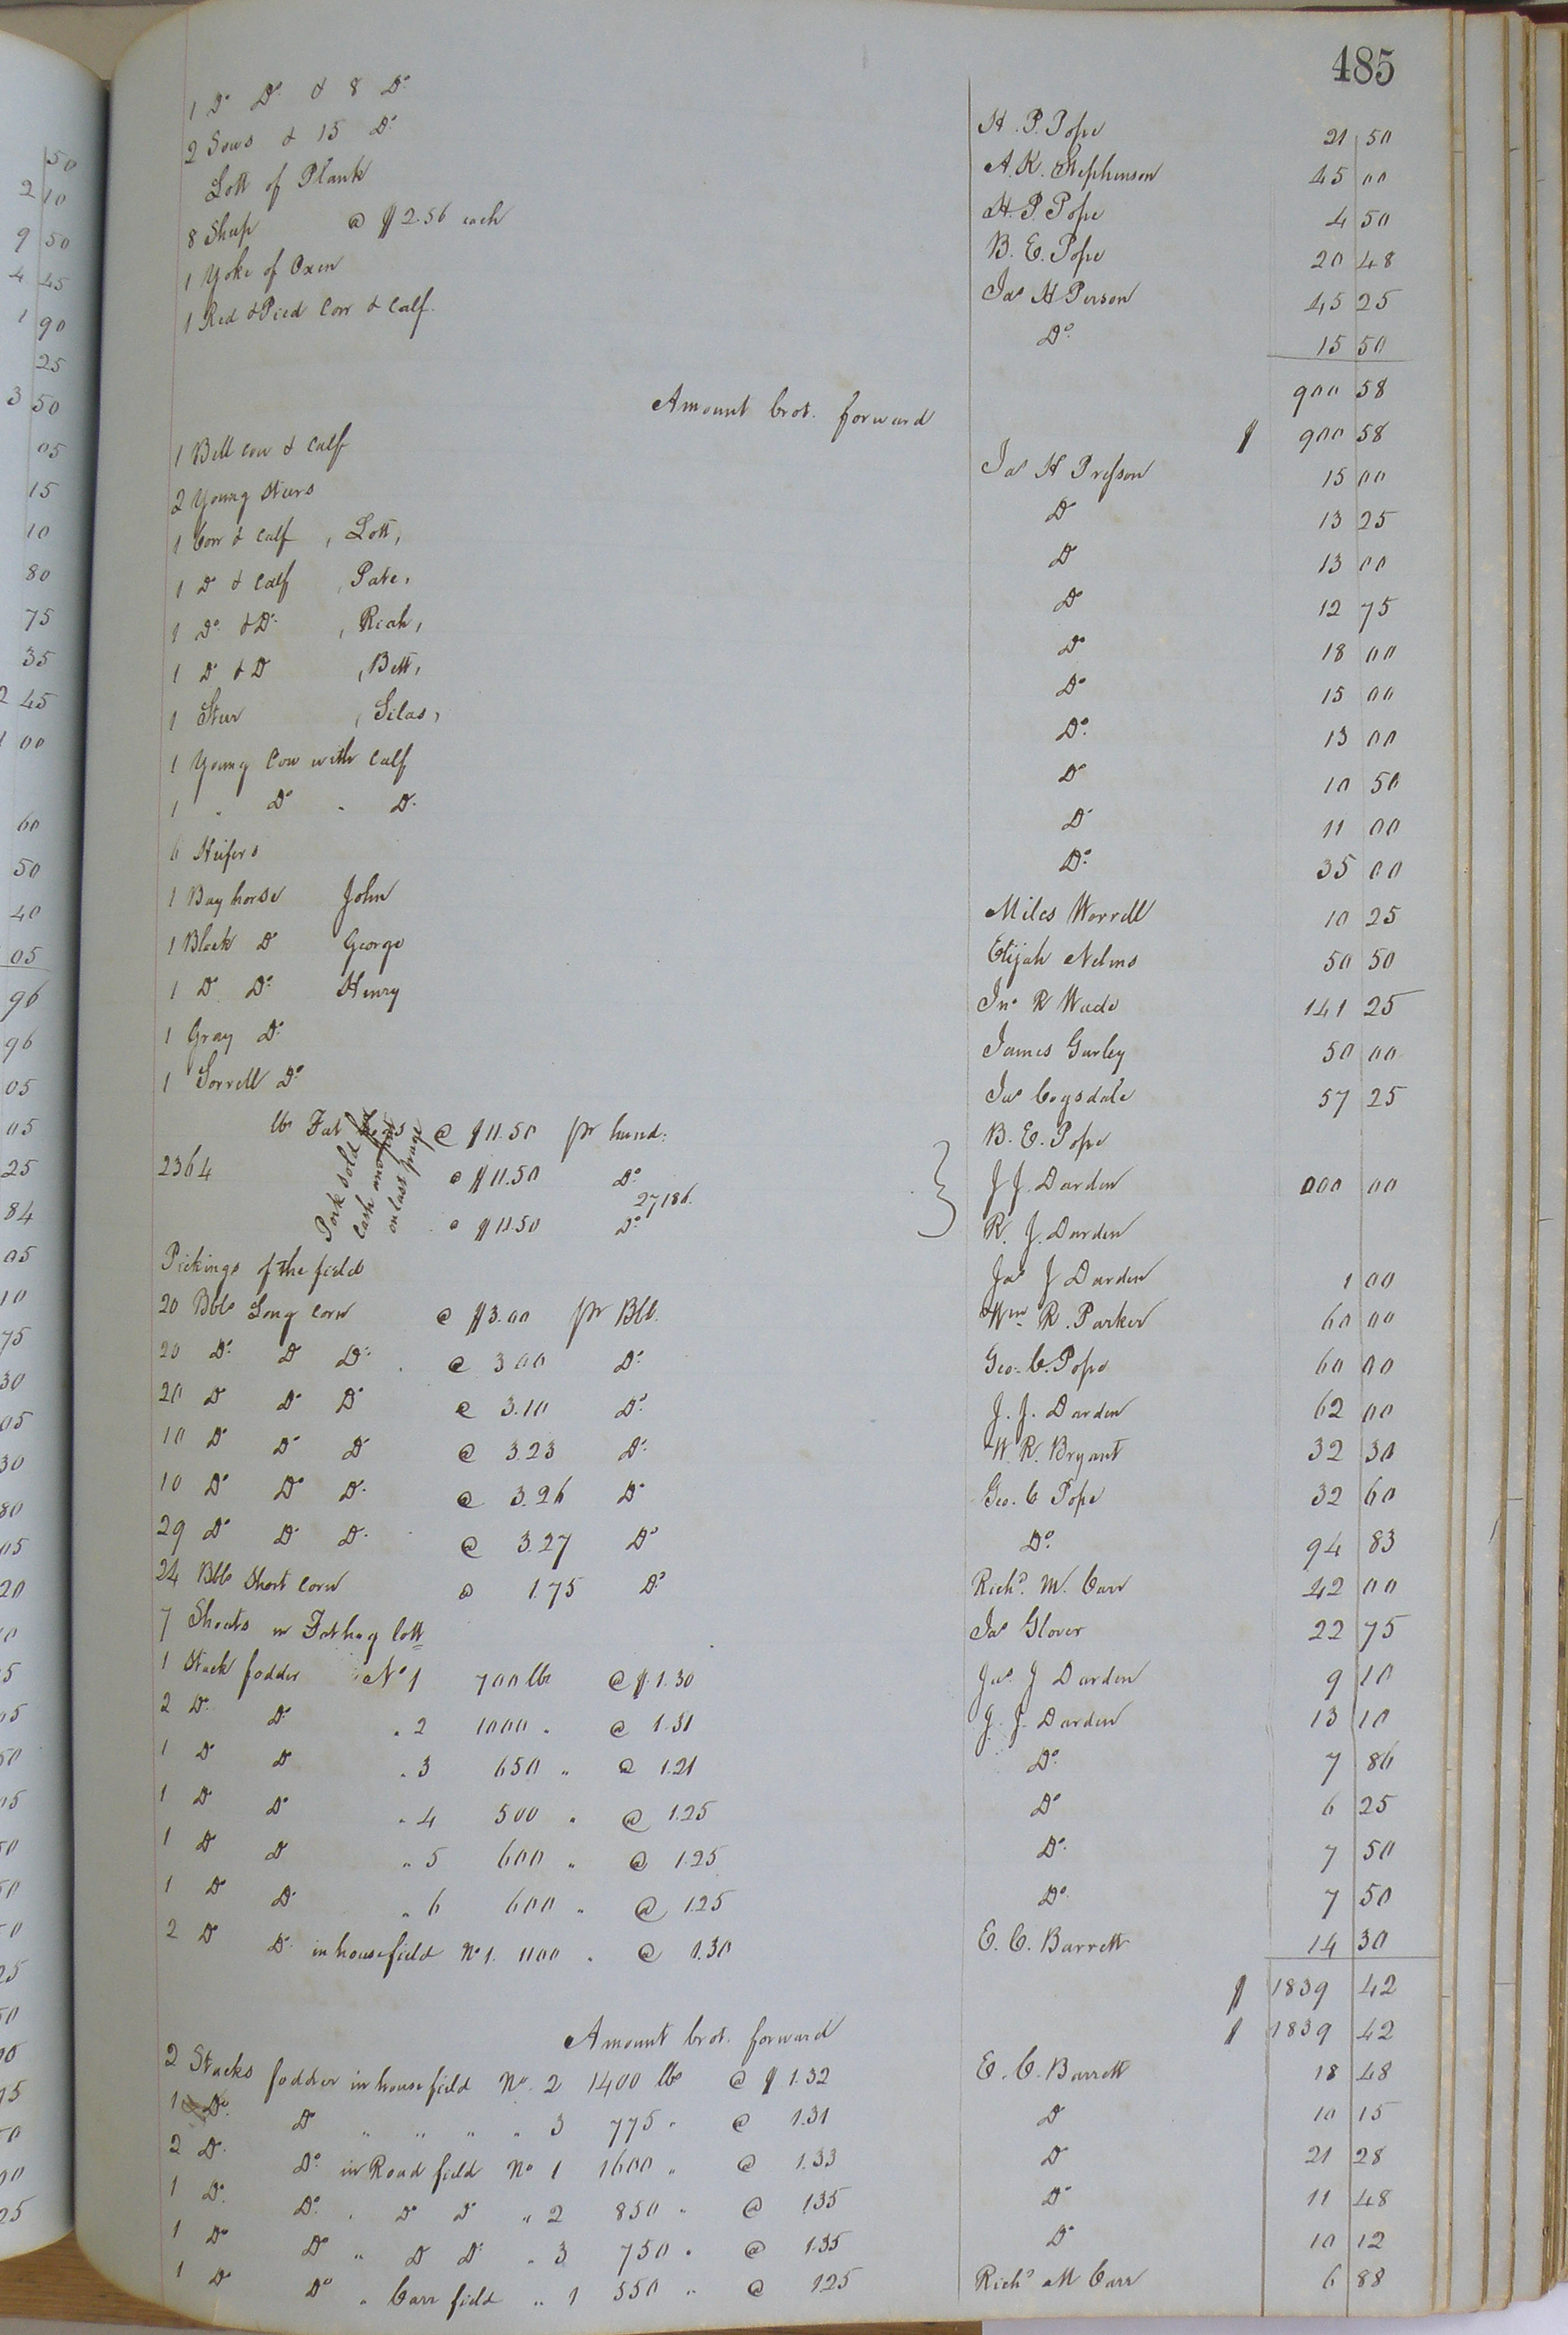 485
1 Do Do & 8 Do H. P. Pope 21 50
2 Sows & 15 Do A. K. Stephenson 45 00
Lott of Plank H. P. Pope 4 50
8 Sheep @ $2.56 each B. E. Pope 20 48
1 Yoke of Oxen Jas H Person 45 25
1 Red & Pied Cow & Calf Do 15 50
900 58
Amount brot. forward $ 900 58
1 Bell cow & calf Jas H Presson 15 00
2 Young Steers Do 13 25
1 Cow & calf , Lott, Do 13 00
1 Do & calf , Pate, Do 12 75
1 Do & Do , Reah, Do 18 00
1 Do & Do , Bett, Do 15 00
1 Steer , Silas, Do 13 00
1 Young Cow with calf Do 10 50
1 " Do " Do Do 11 00
6 Heifers Do 35 00
1 Bay horse John Miles Worrell 10 25
1 Black Do George Elijah Nelms 50 50
1 Do Do Henry Jno R Wade 141 25
1 Gray Do James Gurley 50 00
1 Sorrell Do Jas Cogsdale 57 25
lbs Fat @ $11.50 pr hund: B. E. Pope
2364 @ $11.50 Do J J. Darden 000 00
27186.
@ $11.50 Do R. J. Darden
Pork sold for
cash and
on last page
Pickings of the field Jas J Darden 1 00
20 Bbls Long corn @ $3.00 pr Bbl. Wm R. Parker 60 00
20 Do Do Do @ 3.00 Do Geo. C. Pope 60 00
20 Do Do Do @ 3.10 Do J. J. Darden 62 00
10 Do Do Do @ 3.23 Do W. R. Bryant 32 30
10 Do Do Do @ 3.26 Do Geo. C Pope 32 60
29 Do Do Do @ 3.27 Do Do 94 83
24 Bbls Short corn @ 1.75 Do Richd. M. Carr 42 00
7 Shoats in Fat hog lott Jas Glover 22 75
1 Stack fodder No 1 700 lbs @ $1.30 Jas. J Darden 9 10
2 Do Do " 2 1000 " @ 1.31 J. J. Darden 13 10
1 Do Do " 3 650 " @ 1.21 Do 7 86
1 Do Do " 4 500 " @ 1.25 Do 6 25
1 Do Do " 5 600 " @ 1.25 Do 7 50
1 Do Do " 6 600 " @ 1.25 Do 7 50
2 Do Do in house field No 1. 1100 " @ 1.30 E. C. Barrett 14 30
$ 1839 42
Amount brot. forward $ 1839 42
2 Stacks fodder in house field No. 2 1400 lbs @ $ 1.32 E. C. Barrett 18 48
1 Do Do " " " " 3 775 " @ 1.31 Do 10 15
2 Do Do in Road field No 1 1600 " @ 1.33 Do 21 28
1 Do Do " Do Do " 2 850 " @ 1.35 Do 11 48
1 Do Do " Do Do " 3 750 " @ 1.35 Do 10 12
1 Do Do " Carr field " 1 550 " @ 1.25 Richd M Carr 6 88